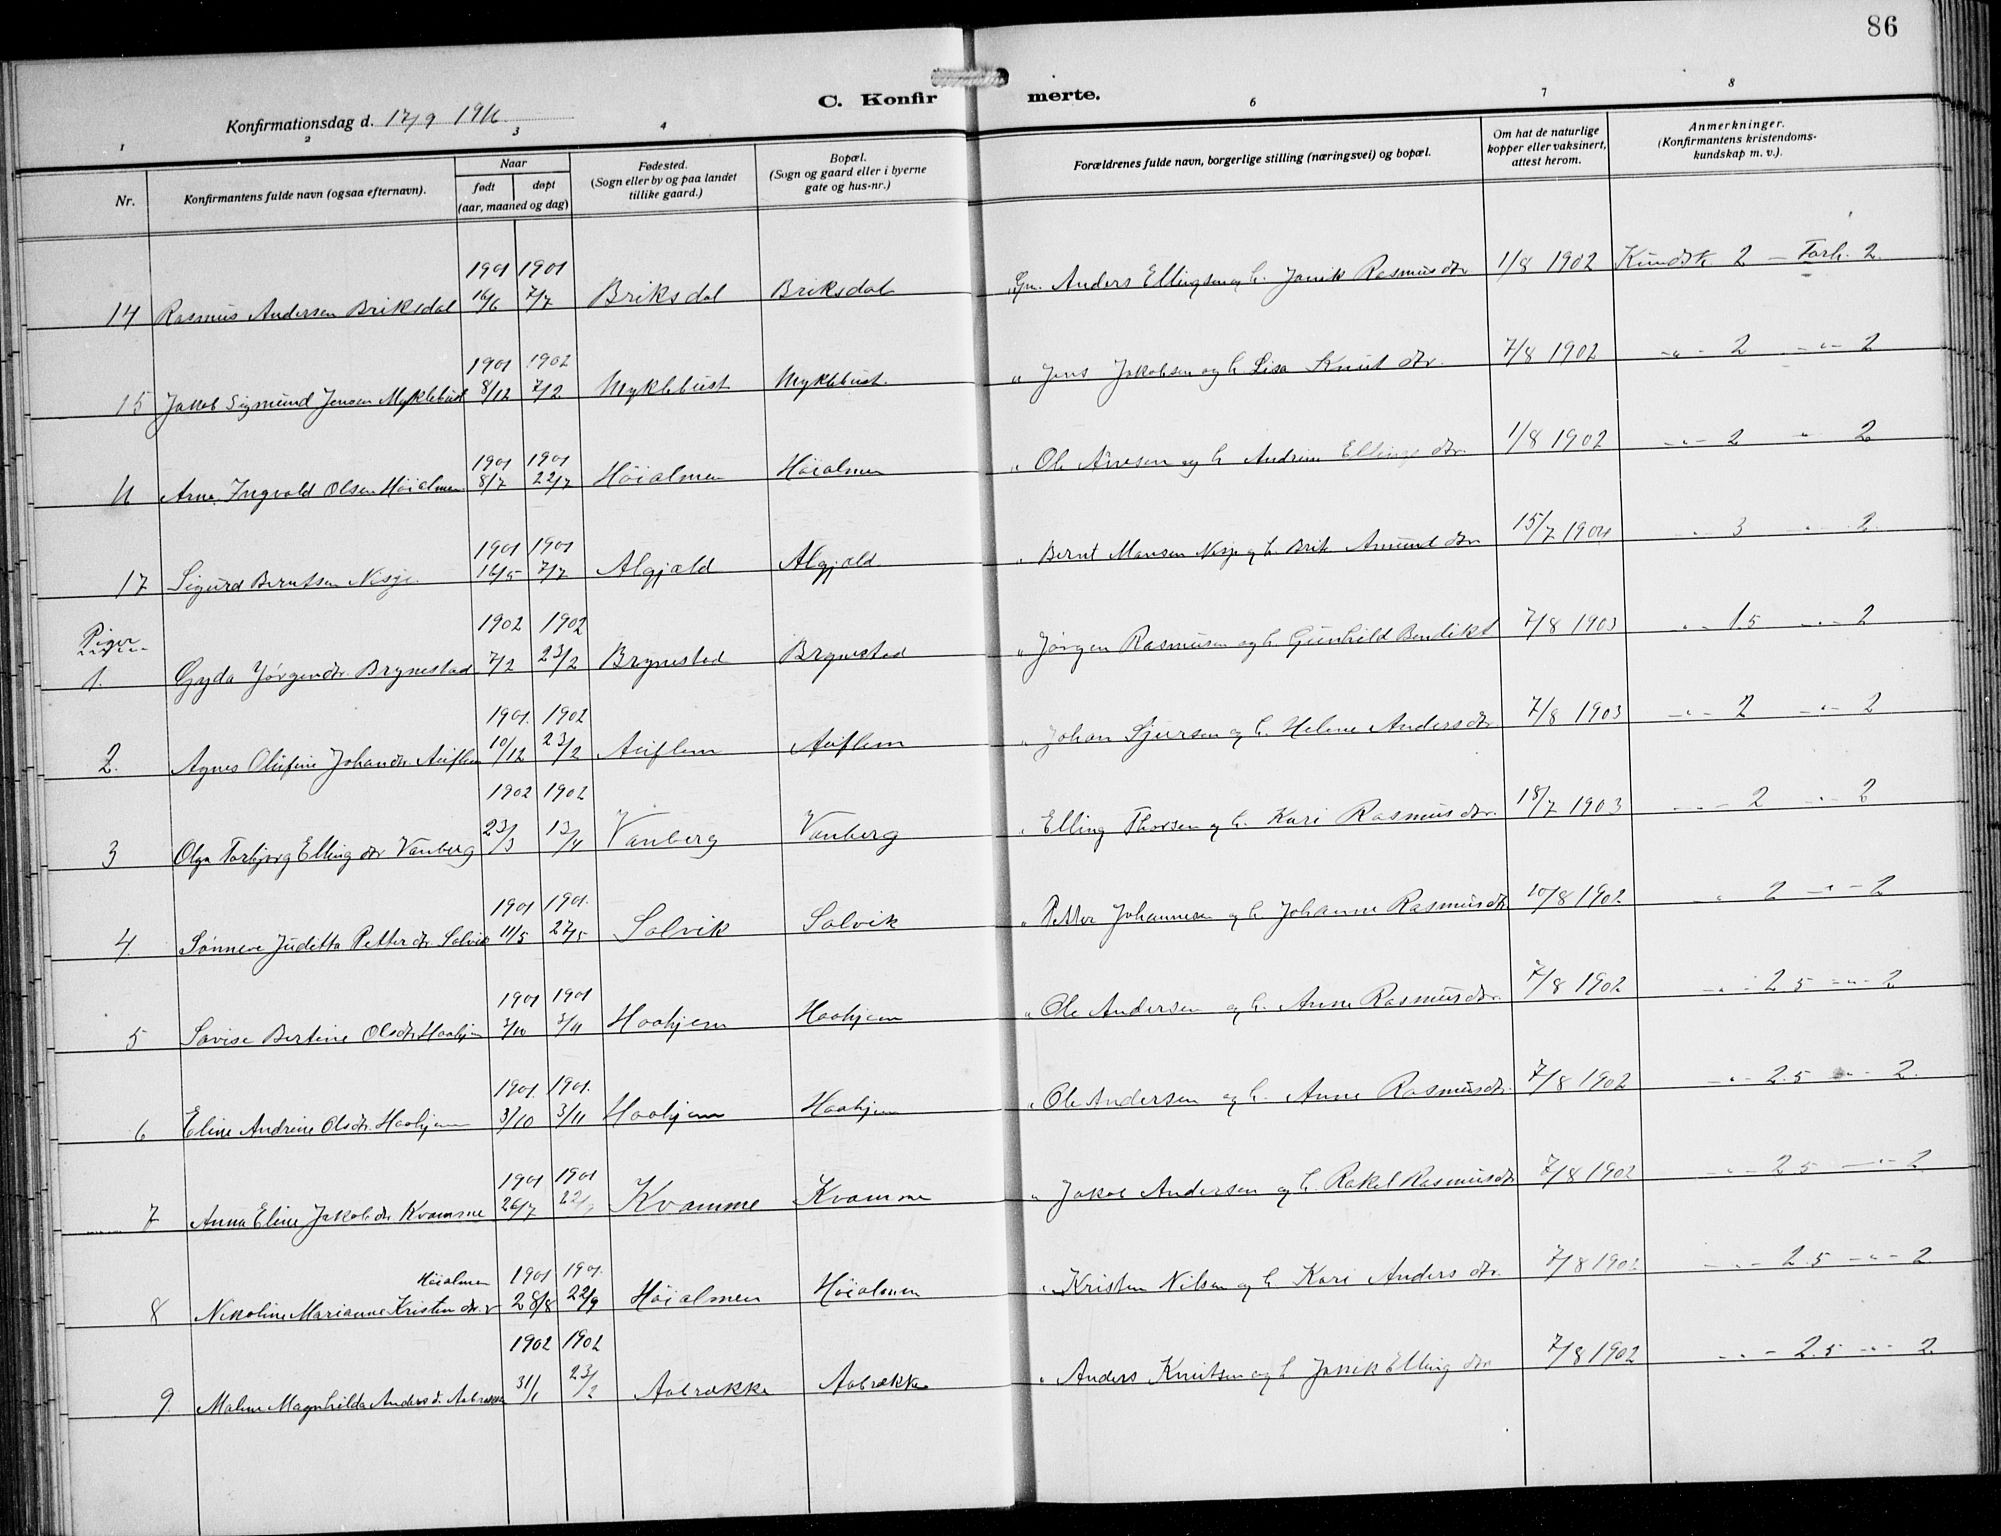 86
C. Konfirmerte.
Konfirmationsdag d. 17/9 1916.
1 2 3 4 6 7 8
Nr.
Konfirmantens fulde navn (ogsaa efternavn).
Naar
født
døpt
(aar, maaned og dag)
Fødested.
(Sogn eller by og paa landet
tillike gaard.)
Bopæl.
(Sogn og gaard eller i byerne
gate og hus-nr.)
Forældrenes fulde navn, borgerlige stilling (næringsvei) og bopæl.
Om hat de naturlige
kopper eller vaksinert,
attest herom.
Anmerkninger.
(Konfirmantens kristendoms-
kundskap m. v.).
14 Rasmus Andersen Briksdal 1901 16/6 1901 7/7 Briksdal Briksdal Gm. Anders Ellingsen og h. Janik Rasmusdtr 1/8 1902 Kundsk. 2 - Forh. 2
15 Jakob Sigmund Jensen Myklebust 1901 8/12 1902 7/2 Myklebust Myklebust. " Jens Jakobsen og h. Lisa Knutdtr. 7/8 1902 -"- 2 -"- 2
16 Arne Ingvald Olsen Höialmen 1901 8/7 1901 22/7 Höialmen Höialmen " Ole Arnesen og h. Andrine Ellingsdtr. 1/8 1902 -"- 2 " 2
17 Sigurd Berntsen Nesje. 1901 16/5 1901 7/7 Algjæld Algjæld " Bernt Monsen Nesje og h. Brit Amunddtr 15/7 1904 " 3 " 2
Piger
1. Gyda Jörgendtr. Brynestad 1902 7/2 1902 23/2 Brynestad Brynestad " Jörgen Rasmusen og h. Gunhild Bendikt 7/8 1903 -"- 1.5 -"- 2
2. Agnes Olufine Johandtr. Auflem 1901. 10/12 1902 23/2 Auflem Auflem " Johan Sjursen og h. Helene Andersdtr. 7/8 1903 -"- 2 -"- 2
3 Olga Torbjørg Ellingdtr Vanberg 1902 23/3 1902 13/4 Vanberg Vanberg " Elling Thorsen og h. Kari Rasmusdtr. 18/7 1903 -"- 2 -"- 2
4. Sönneve Juditta Petterdtr Solvik 1901 11/5 1901. 27/5 Solvik Solvik " Petter Johannesen og h. Johanne Rasmusdtr 10/8 1902 -"- 2 -"- 2
5 Lovise Bertine Olsdtr. Haahjem 1901 3/10 1901 3/11 Haahjem Haahjem " Ole Andersen og h. Anne Rasmusdtr. 7/8 1902 -"- 2.5 -"- 2
6 Eline Andrine Olsdtr. Haahjem 1901. 3/10 1901. 3/11 Haahjem Haahjem " Ole Andersen og h. Anne Rasmusdtr. 7/8 1902 -"- 2.5 -"- 2.
7 Anna Eline Jakobdtr Kvamme 1901 26/7 1901 Kvamme Kvamme " Jakob Andersen og h. Rakel Rasmusdtr 7/8 1902 -"- 2.5 -"- 2
8 Nikoline Marianne Kristendtr. Höialmen 1901 28/8 1901. 22/9 Höialmen Höialmen " Kristen Nilsen og h. Kari Andersdtr. 7/8 1902 -"- 2.5 -"- 2
9. Malene Magnhilda Andersd. Aabrække 1902 31/1 1902 23/2 Aabrække Aabrække " Anders Knutsen og h. Jannik Ellingdtr 7/8 1902 -"- 2.5 -"- 2